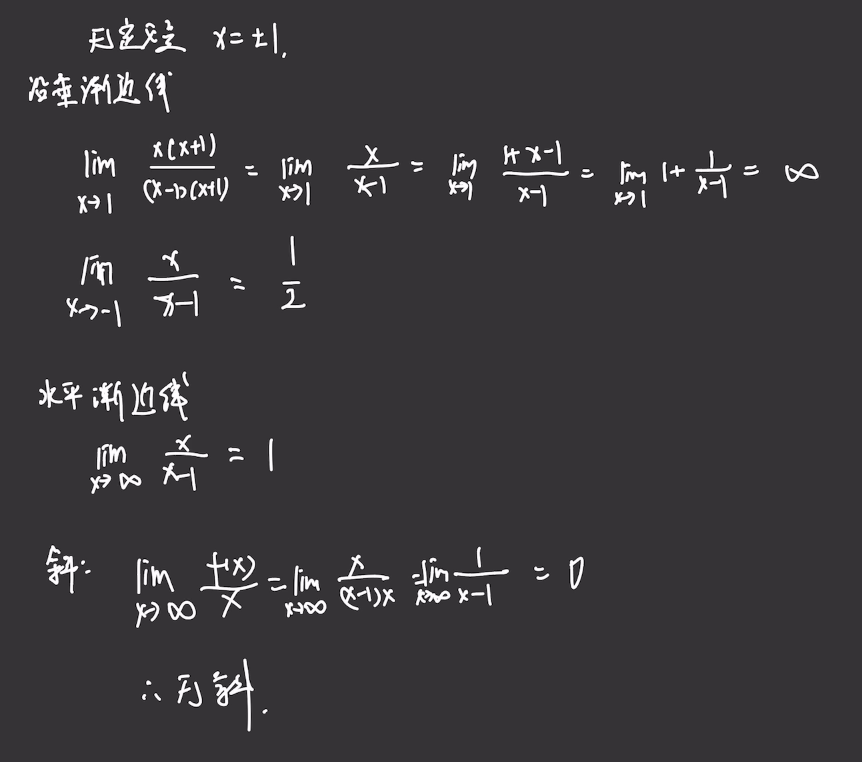 无定义点 x=±1.
铅垂渐近线
lim x→1 x(x+1)/(x-1)(x+1) = lim x→1 x/x-1 = lim x→1 1+x-1/x-1 = lim x→1 1+1/x-1 = ∞
lim x→-1 x/x-1 = 1/2
水平渐近线
lim x→∞ x/x-1 = 1
斜: lim x→∞ f(x)/x = lim x→∞ x/(x-1)x = lim x→∞ 1/x-1 = 0
∴ 无斜.